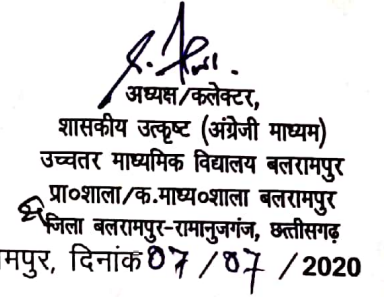 अध्यक्ष/कलेक्टर,
शासकीय उत्कृष्ट (अंग्रेजी माध्यम)
उच्चतर माध्यमिक विद्यालय बलरामपुर
प्रा०शाला/क.माध्य०शाला बलरामपुर
जिला बलरामपुर-रामानुजगंज, छत्तीसगढ़
मपुर, दिनांक 07/07/2020